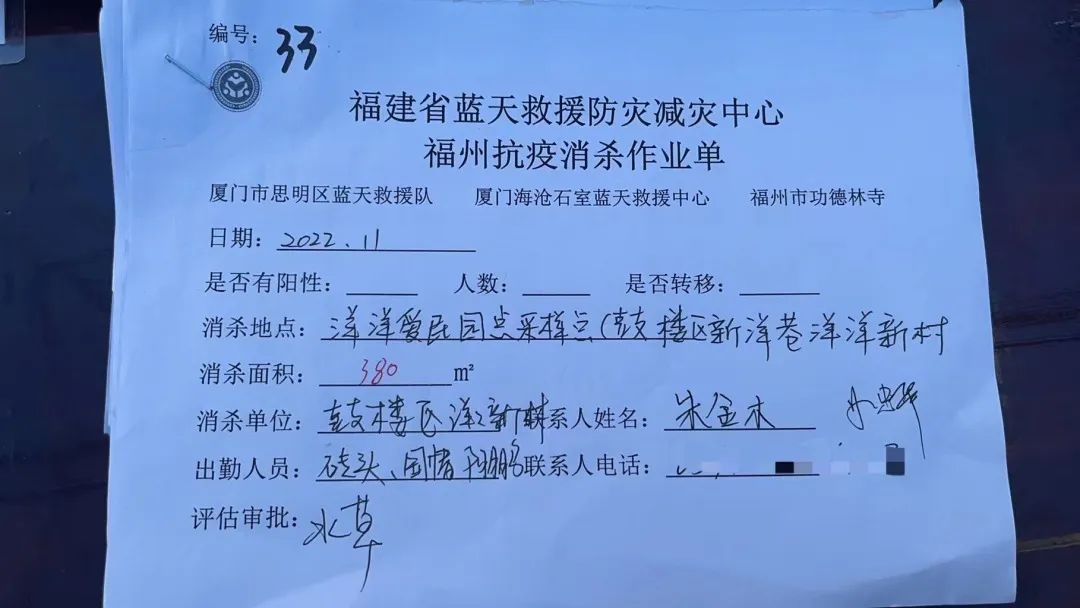 编号：33
福建省蓝天救援防灾减灾中心
福州抗疫消杀作业单
厦门市思明区蓝天救援队 厦门海沧石室蓝天救援中心 福州市功德林寺
日期：2022.11
是否有阳性： 人数： 是否转移：
消杀地点：洋洋爱民固点采样点（鼓楼区新洋巷洋洋新村
消杀面积：380 ㎡
消杀单位：鼓楼区洋洋新村 联系人姓名：朱金木
出勤人员：砖头、 联系人电话：
评估审批：水草